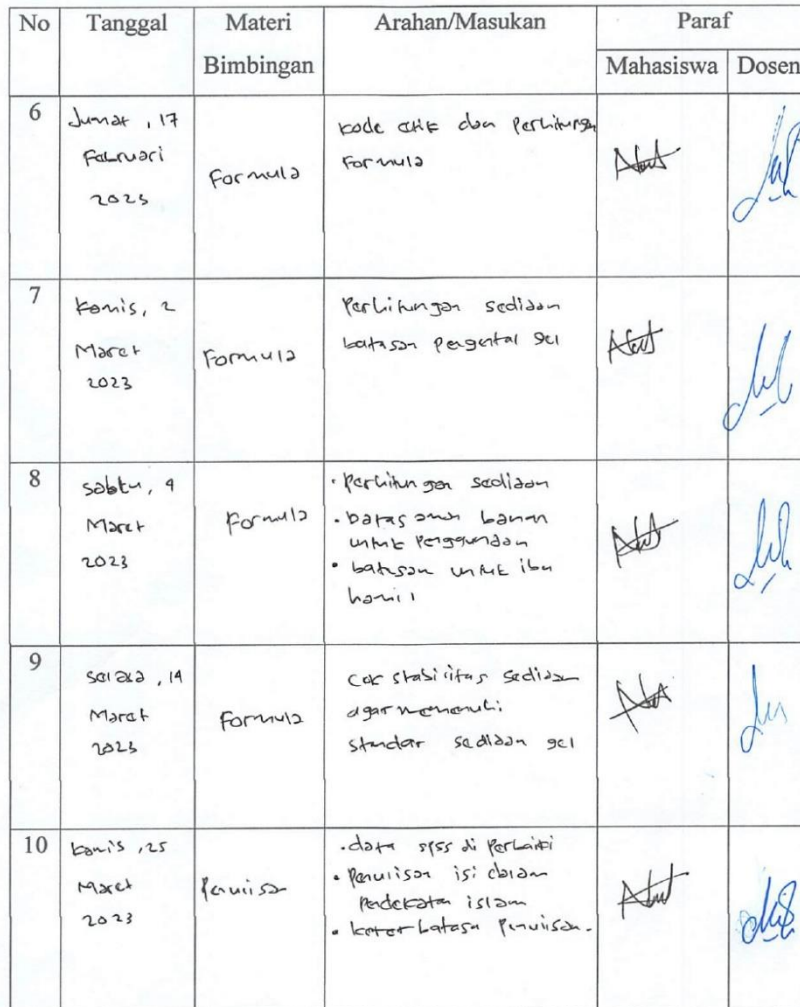 No Tanggal Materi Bimbingan Arahan/Masukan Paraf
Mahasiswa Dosen
6
Jumat, 17
Februari
2023
Formula
kode etik dan Perhitungan
Formula
7
Kamis, 2
Maret
2023
Formula
Perhitungan sediaan
batasan pengental gel
8
Sabtu, 4
Maret
2023
Formula
• Perhitungan sediaan
• batas aman bahan
untuk penggunaan
• batasan untuk ibu
hamil
9
Selasa, 14
Maret
2023
Formula
Cek stabilitas sediaan
agar memenuhi
standar sediaan gel
10
Kamis, 25
Maret
2023
Penulisan
• data spss di perbaiki
• Penulisan isi dalam
Pendekatan islam
• keterbatasan Penulisan.